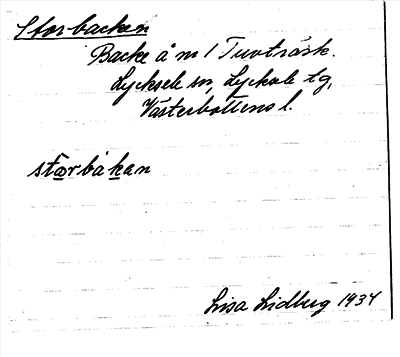 Storbacken
Backe å nr 1 Tuvträsk.
Lycksele sn, Lycksele tg,
Västerbottens l.
storbakan
Lisa Lidberg 1934